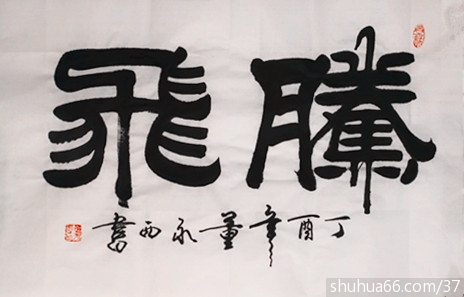 騰飛
丁酉年董永西書
shuhua66.com/37